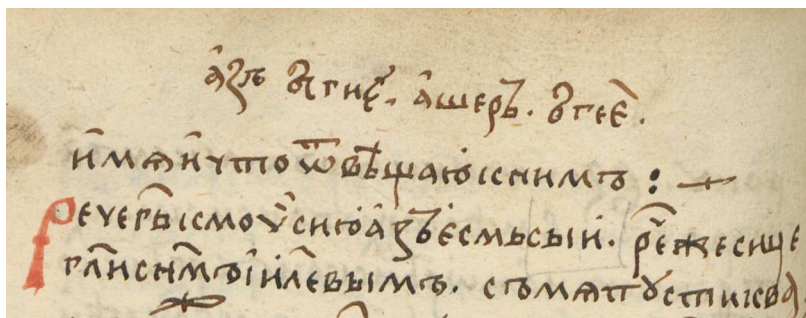 а҆зъ ѿгнꙋ. а҆шеръ. ѿгее҆.
и҆мѧ и҆ что ѿвѣщаю к нимъ :
Рече г҃ь к моѵ҆сию а҆зъ е҆смь сыи. р҃еже сице
гл҃и сн҃мъ и҆ил҃евымъ. съ мѧ пꙋсти к ва